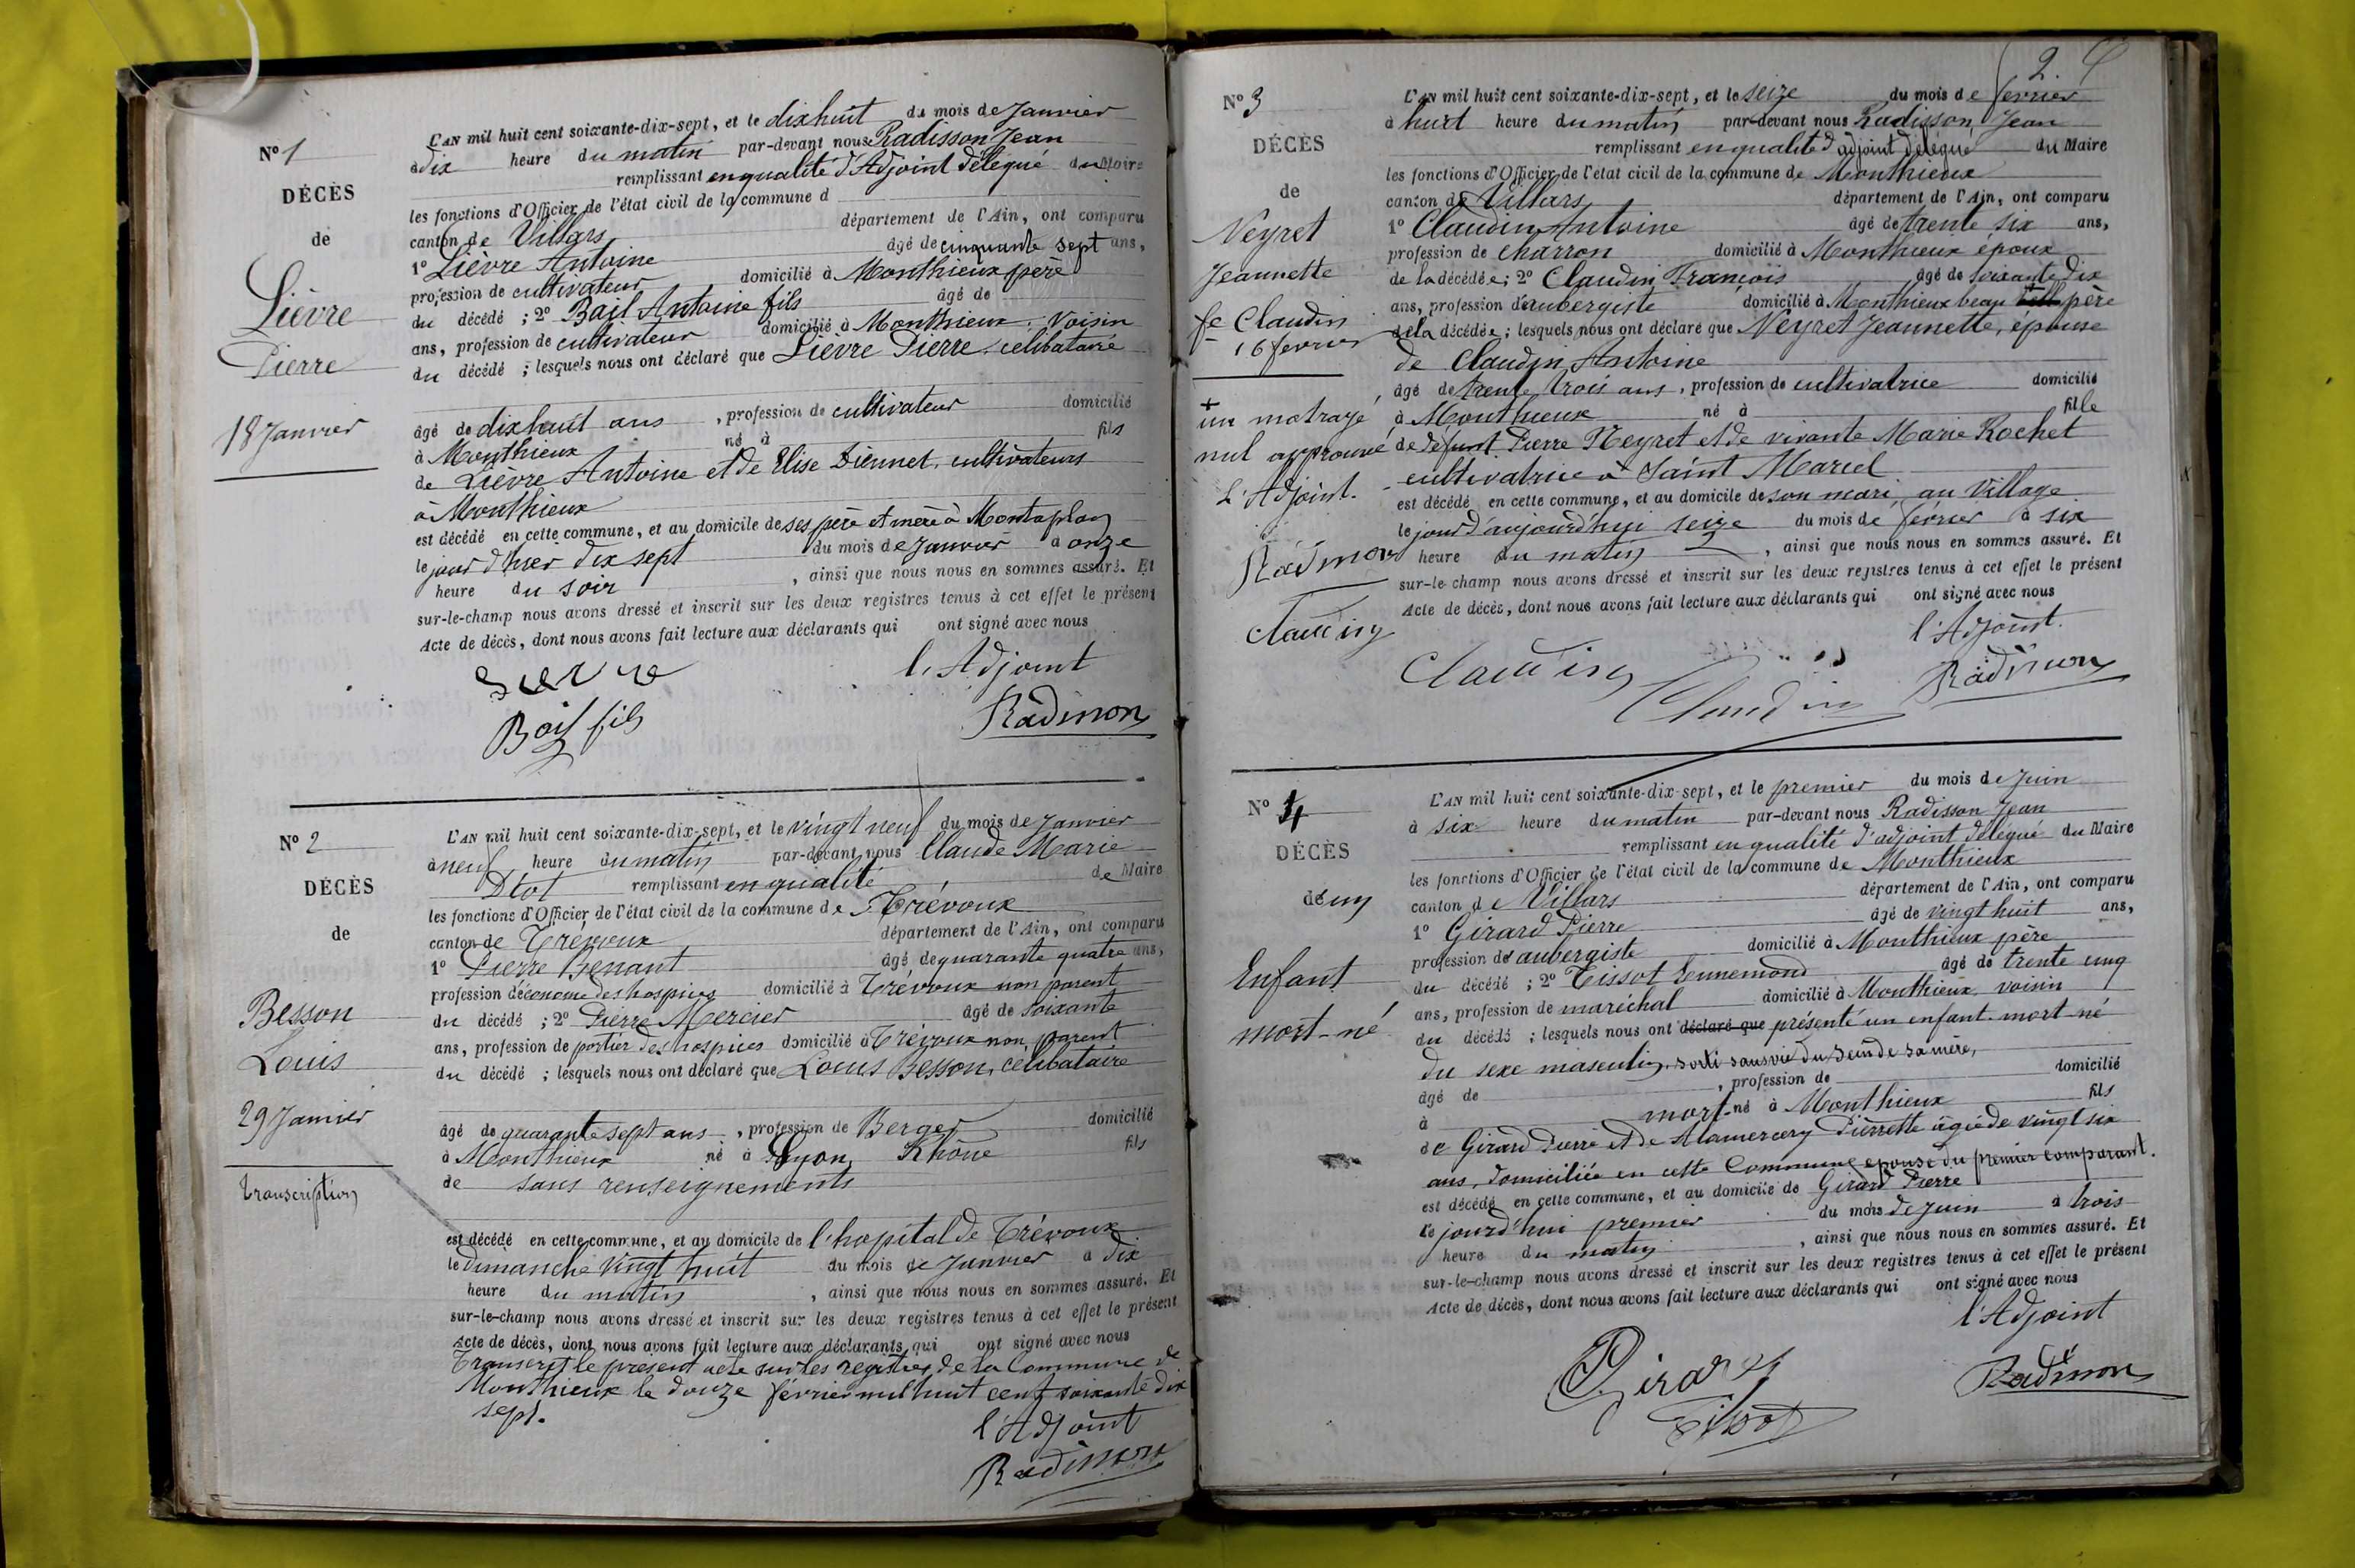 N° 1
DÉCÈS
de
Lièvre
Pierre
18 Janvier
L'AN mil huit cent soixante-dix-sept, et le dixhuit du mois de Janvier
à dix heure du matin par-devant nous Radisson Jean
remplissant en qualité d'Adjoint délégué du Maire
les fonctions d'Officier de l'état civil de la commune d
canton de Villars département de l'Ain, ont comparu
1° Lièvre Antoine âgé de cinquante sept ans,
profession de cultivateur domicilié à Monthieux père
du décédé ; 2° Bail Antoine fils âgé de
ans, profession de cultivateur domicilié à Monthieux, voisin
du décédé ; lesquels nous ont déclaré que Lièvre Pierre, célibataire
âgé de dixhuit ans , profession de cultivateur domicilié
à Monthieux né à fils
de Lièvre Antoine et de Elise Diennet, cultivateurs
à Monthieux
est décédé en cette commune, et au domicile de ses père et mère à Montaplan
le jour d'hier dix sept du mois de Janvier à onze
heure du soir , ainsi que nous nous en sommes assuré. Et
sur-le-champ nous avons dressé et inscrit sur les deux registres tenus à cet effet le présent
Acte de décès, dont nous avons fait lecture aux déclarants qui ont signé avec nous
Lievre l'Adjoint
Bail fils Radisson
N° 2
DÉCÈS
de
Besson
Louis
29 Janvier
transcription
L'AN mil huit cent soixante-dix-sept, et le vingt neuf du mois de Janvier
à neuf heure du matin par-devant nous Claude Marie
remplissant en qualité de Maire
les fonctions d'Officier de l'état civil de la commune de Trévoux
canton de Trévoux département de l'Ain, ont comparu
1° Pierre Benant âgé de quarante quatre ans,
profession d'économe des hospices domicilié à Trévoux non parent
du décédé ; 2° Pierre Mercier âgé de soixante
ans, profession de portier des hospices domicilié à Trévoux non parent
du décédé ; lesquels nous ont déclaré que Louis Besson, célibataire
âgé de quarante sept ans , profession de Berger domicilié
à Monthieux né à Lyon, Rhône fils
de sans renseignements
est décédé en cette commune, et au domicile de l'hopital de Trévoux
le Dimanche vingt huit du mois de Janvier à dix
heure du matin , ainsi que nous nous en sommes assuré. Et
sur-le-champ nous avons dressé et inscrit sur les deux registres tenus à cet effet le présent
Acte de décès, dont nous avons fait lecture aux déclarants qui ont signé avec nous
Transcrit le présent acte sur les registres de la Commune de
Monthieux le douze février mil huit cent soixante dix
sept.
l'Adjoint
Radisson
2.
N° 3
DÉCÈS
de
Neyret
Jeannette
fe Claudin
16 fevrier
+
un mot rayé
nul approuvé
L'Adjoint.
Radisson
Claudin
L'AN mil huit cent soixante-dix-sept, et le seize du mois de février
à huit heure du matin par-devant nous Radisson Jean
remplissant en qualité d'adjoint délégué du Maire
les fonctions d'Officier de l'état civil de la commune de Monthieux
canton de Villars département de l'Ain, ont comparu
1° Claudin Antoine âgé de trente six ans,
profession de charron domicilié à Monthieux époux
de la décédée ; 2° Claudin François âgé de soixante dix
ans, profession d'aubergiste domicilié à Monthieux beau père
de la décédée ; lesquels nous ont déclaré que Neyret Jeannette, épouse
de Claudin Antoine
âgé de trente trois ans , profession de cultivatrice domicilié
à Monthieux né à fille
de défunt Pierre Neyret et de vivante Marie Rochet
cultivatrice à Saint Marcel
est décédé en cette commune, et au domicile de son mari, au Village
le jour d'aujourd'hui seize du mois de février à six
heure du matin , ainsi que nous nous en sommes assuré. Et
sur-le-champ nous avons dressé et inscrit sur les deux registres tenus à cet effet le présent
Acte de décès, dont nous avons fait lecture aux déclarants qui ont signé avec nous
l'Adjoint.
Claudin Claudin Radisson
N° 4
DÉCÈS
d'un
Enfant
mort-né
L'AN mil huit cent soixante-dix-sept, et le premier du mois de Juin
à six heure du matin par-devant nous Radisson Jean
remplissant en qualité d'adjoint délégué du Maire
les fonctions d'Officier de l'état civil de la commune de Monthieux
canton de Villars département de l'Ain, ont comparu
1° Girard Pierre âgé de vingt huit ans,
profession d'aubergiste domicilié à Monthieux père
du décédé ; 2° Tissot Ennemond âgé de trente cinq
ans, profession de maréchal domicilié à Monthieux, voisin
du décédé ; lesquels nous ont déclaré que présenté un enfant mort-né
du sexe masculin, sorti sans vie du sein de sa mère,
âgé de , profession de domicilié
à mort-né à Monthieux fils
de Girard Pierre et de Alamercery Pierrette âgée de vingt six
ans, domiciliée en cette Commune épouse du premier comparant.
est décédé en cette commune, et au domicile de Girard Pierre
le jourd'hui premier du mois de Juin à trois
heure du matin , ainsi que nous nous en sommes assuré. Et
sur-le-champ nous avons dressé et inscrit sur les deux registres tenus à cet effet le présent
Acte de décès, dont nous avons fait lecture aux déclarants qui ont signé avec nous
l'Adjoint
Girard Radisson
Tissot